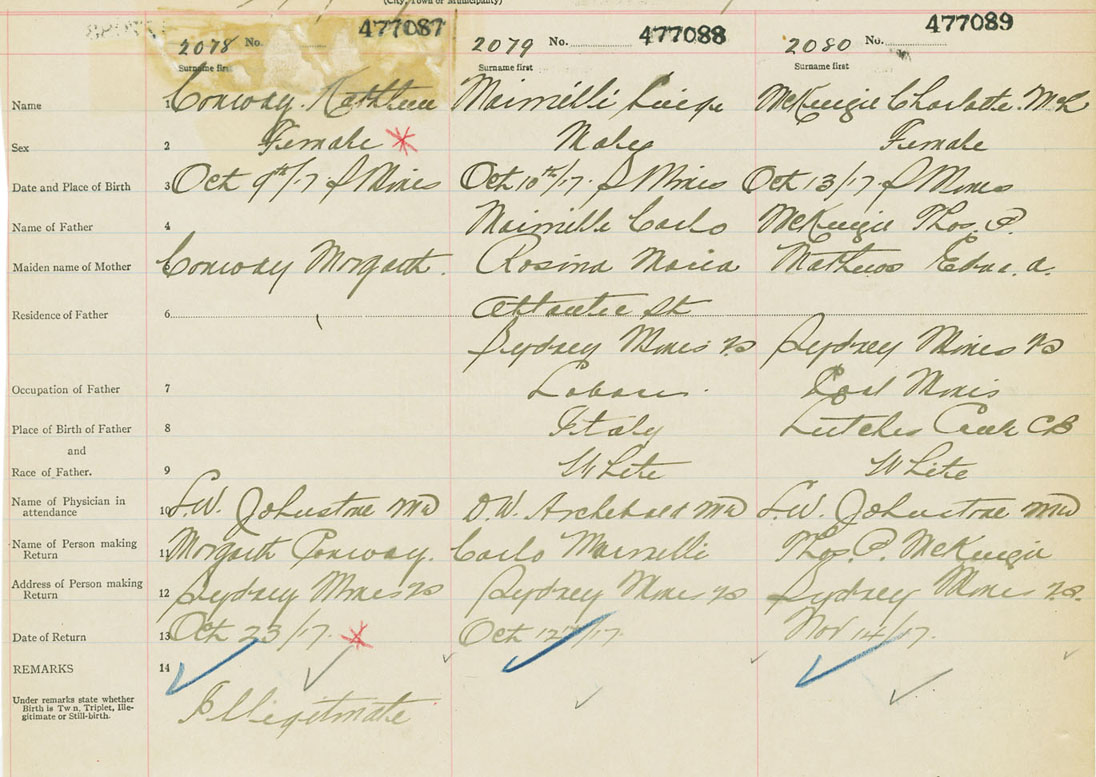 (City, Town or Municipality)
2078 No. 477087 2079 No. 477088 2080 No. 477089
Surname first Surname first Surname first
Name 1 Conway Kathleen Mairnelli McKenzie Charlotte
Sex 2 Female Male Female
Date and Place of Birth 3 Oct 9th/17 S Mines Oct 10th/17 S Mines Oct 13/17 S Mines
Name of Father 4 Mairnelli Carlo McKenzie Thos. P.
Maiden name of Mother Conway Margaret. Rosina Maria Mathews Edna. A.
Residence of Father 6 Atlantic St
Sydney Mines NS Sydney Mines NS
Occupation of Father 7 Labour Coal Miner
Place of Birth of Father 8 Italy Creek CB
and
Race of Father. 9 White White
Name of Physician in
attendance 10 Johnstone MD D.W. Archibald MD Johnstone MD
Name of Person making
Return 11 Margaret Conway. Carlo Mairnelli Thos. P. McKenzie
Address of Person making
Return 12 Sydney Mines NS Sydney Mines NS Sydney Mines NS.
Date of Return 13 Oct 23/17. Oct 12th/17 Nov 14/17.
REMARKS 14
Under remarks state whether
Birth is Twin, Triplet, Ille-
gitimate or Still-birth. Illegitimate